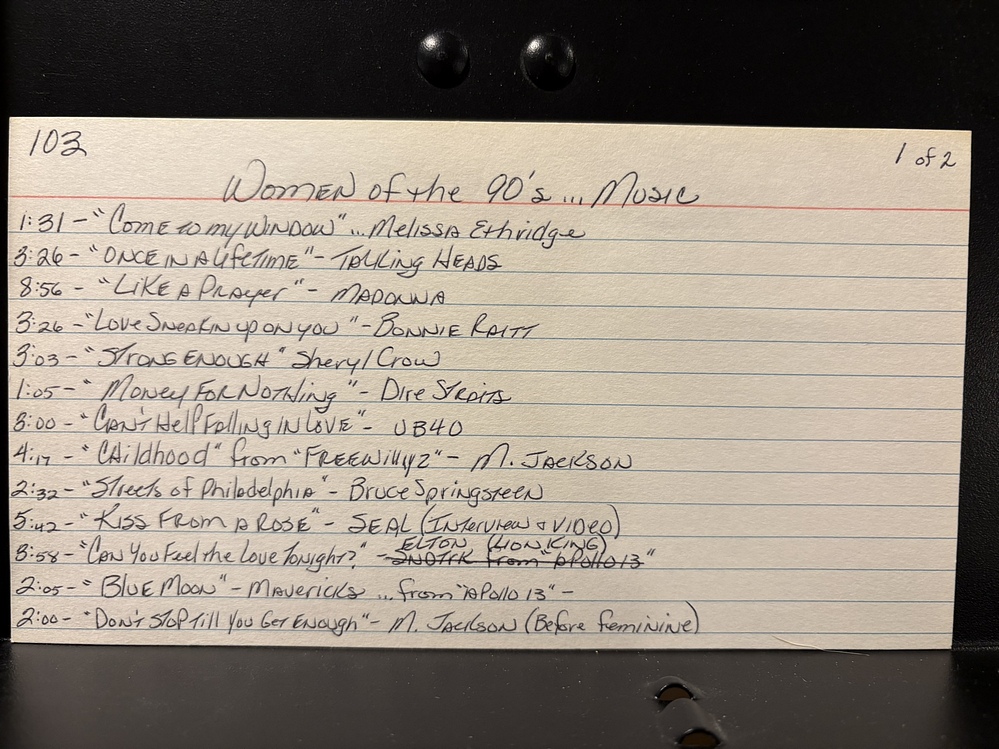 103
1 of 2
Women of the 90's ... Music
1:31 - "Come to my Window" ... Melissa Ethridge
3:26 - "Once in a Lifetime" - Talking Heads
8:56 - "Like a Prayer" - Madonna
3:26 - "Love Sneakin up on you" - Bonnie Raitt
3:03 - "Strong Enough" Sheryl Crow
1:05 - "Money For Nothing" - Dire Straits
3:00 - "Can't Help Falling in Love" - UB40
4:17 - "Childhood" from "Free Willy 2" - M. Jackson
2:32 - "Streets of Philadelphia" - Bruce Springsteen
5:42 - "Kiss From a Rose" - Seal (Interview & Video)
Elton (Lion King)
3:58 - "Can You Feel the Love Tonight?" - SNDTRK from "Apollo 13"
2:05 - "Blue Moon" - Mavericks ... from "Apollo 13" -
2:00 - "Don't Stop Till You Get Enough" - M. Jackson (Before feminine)